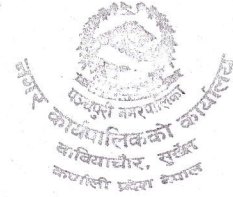 पञ्चपुरी नगरपालिका
नगर कार्यपालिकाको कार्यालय
बाबियाचौर, सुर्खेत
कर्णाली प्रदेश नेपाल